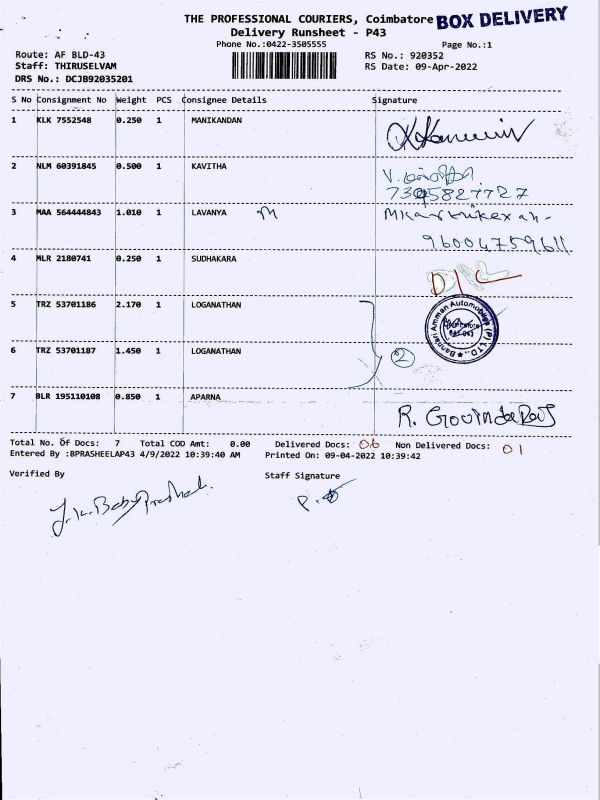 THE PROFESSIONAL COURIERS, Coimbatore BOX DELIVERY
Delivery Runsheet - P43
Phone No.:0422-3505555 Page No.:1
Route: AF BLD-43 RS No.: 920352
Staff: THIRUSELVAM RS Date: 09-Apr-2022
DRS No.: DCJB92035201
S No Consignment No Weight PCS Consignee Details Signature
1 KLK 7552548 0.250 1 MANIKANDAN
2 NLM 60391845 0.500 1 KAVITHA
3 MAA 564444843 1.010 1 LAVANYA M
9600475961
4 MLR 2180741 0.250 1 SUDHAKARA
D/L
5 TRZ 53701186 2.170 1 LOGANATHAN
Bannari Amman Automobiles (P) LTD.
6 TRZ 53701187 1.450 1 LOGANATHAN 2
7 BLR 195110108 0.850 1 APARNA
R. Govindaraj
Total No. Of Docs: 7 Total COD Amt: 0.00 Delivered Docs: 06 Non Delivered Docs: 01
Entered By :BPRASHEELAP43 4/9/2022 10:39:40 AM Printed On: 09-04-2022 10:39:42
Verified By Staff Signature